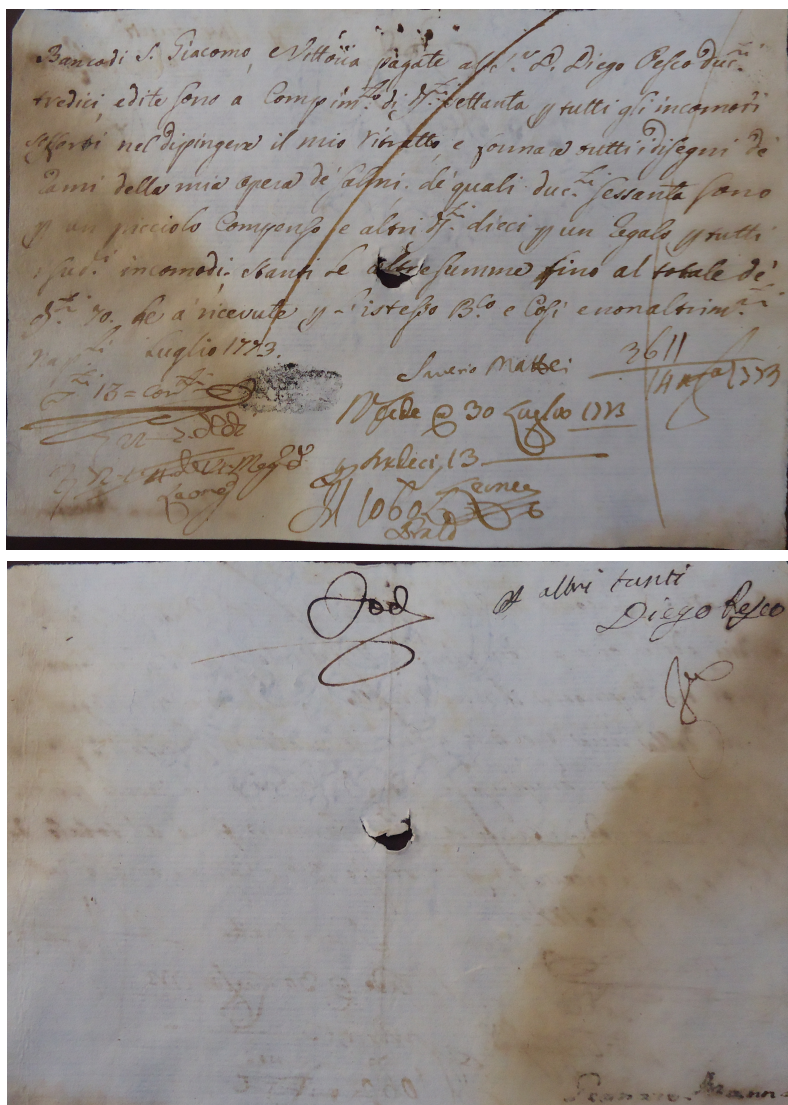 Banco di S. Giacomo, e Vittoria pagate al S.r D. Diego Pesco duc.ti
tredici, e dite sono a compim.to di d.ti settanta p tutti gli incomodi
sofferti nel dipingere il mio ritratto, e formare tutti i disegni de
rami della mia opera de' Salmi, de' quali duc.ti sessanta sono
p un picciolo compenso e altri d.ti dieci p un regalo p tutti
i sud.i incomodi. stanti le altre summe fino al totale de'
d.ti 70. le à ricevute p l'istesso B.co e così e non altrim.ti
Luglio 1773.
Saverio Mattei
3611
1773
13 =
Fede @ 30 Luglio 1773
p tredici 13
1060
Leone
E altri tanti
Diego Pesco